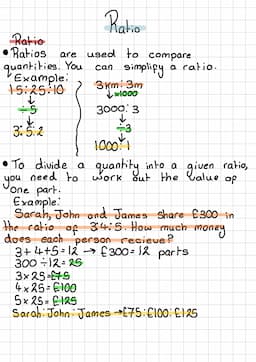 Ratio
Ratio
• Ratios are used to compare
quantities. You can simplify a ratio.
Example:
15:25:10
÷5
3:5:2
3km:3m
×1000
3000:3
÷3
1000:1
• To divide a quantity into a given ratio,
you need to work out the value of
one part.
Example:
Sarah, John and James share £300 in
the ratio of 3:4:5. How much money
does each person recieve?
3+4+5=12 → £300=12 parts
300÷12=25
3×25=£75
4×25=£100
5×25=£125
Sarah:John:James →£75:£100:£125